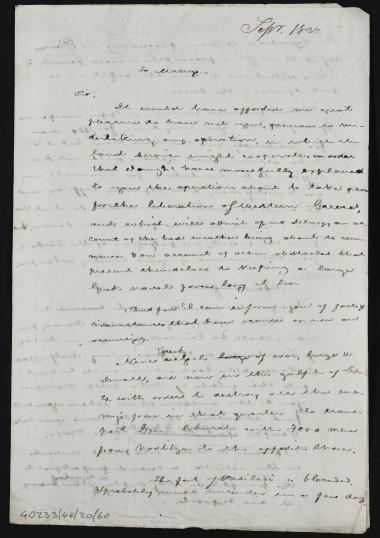 Sepr. 1827
To
Sir.
It would have afforded me great
pleasure to have met you, previous to un-
dertaking any operation, in which the
land service might cooperate, in order
that I might have more fully explained
to you the operations about to take place
for the liberation of Western Greece,
and which will admit of no delay, on ac-
count of the bad weather being about to com-
mence & on account of other obstacles that
present themselves to keeping a large
Greek naval force long at sea.
I can inform you of
circumstances that have occurred or now are
occurring.
Greek
of war, large &
small, are now in the gulph of
to, with orders to destroy all the ene-
my's force in that quarter & to trans-
port Genl. Church with men
from to the opposite shore.
The fort of Vasiladi is blockaded,
& probably must surrender in a few days
GD233/44/20/60